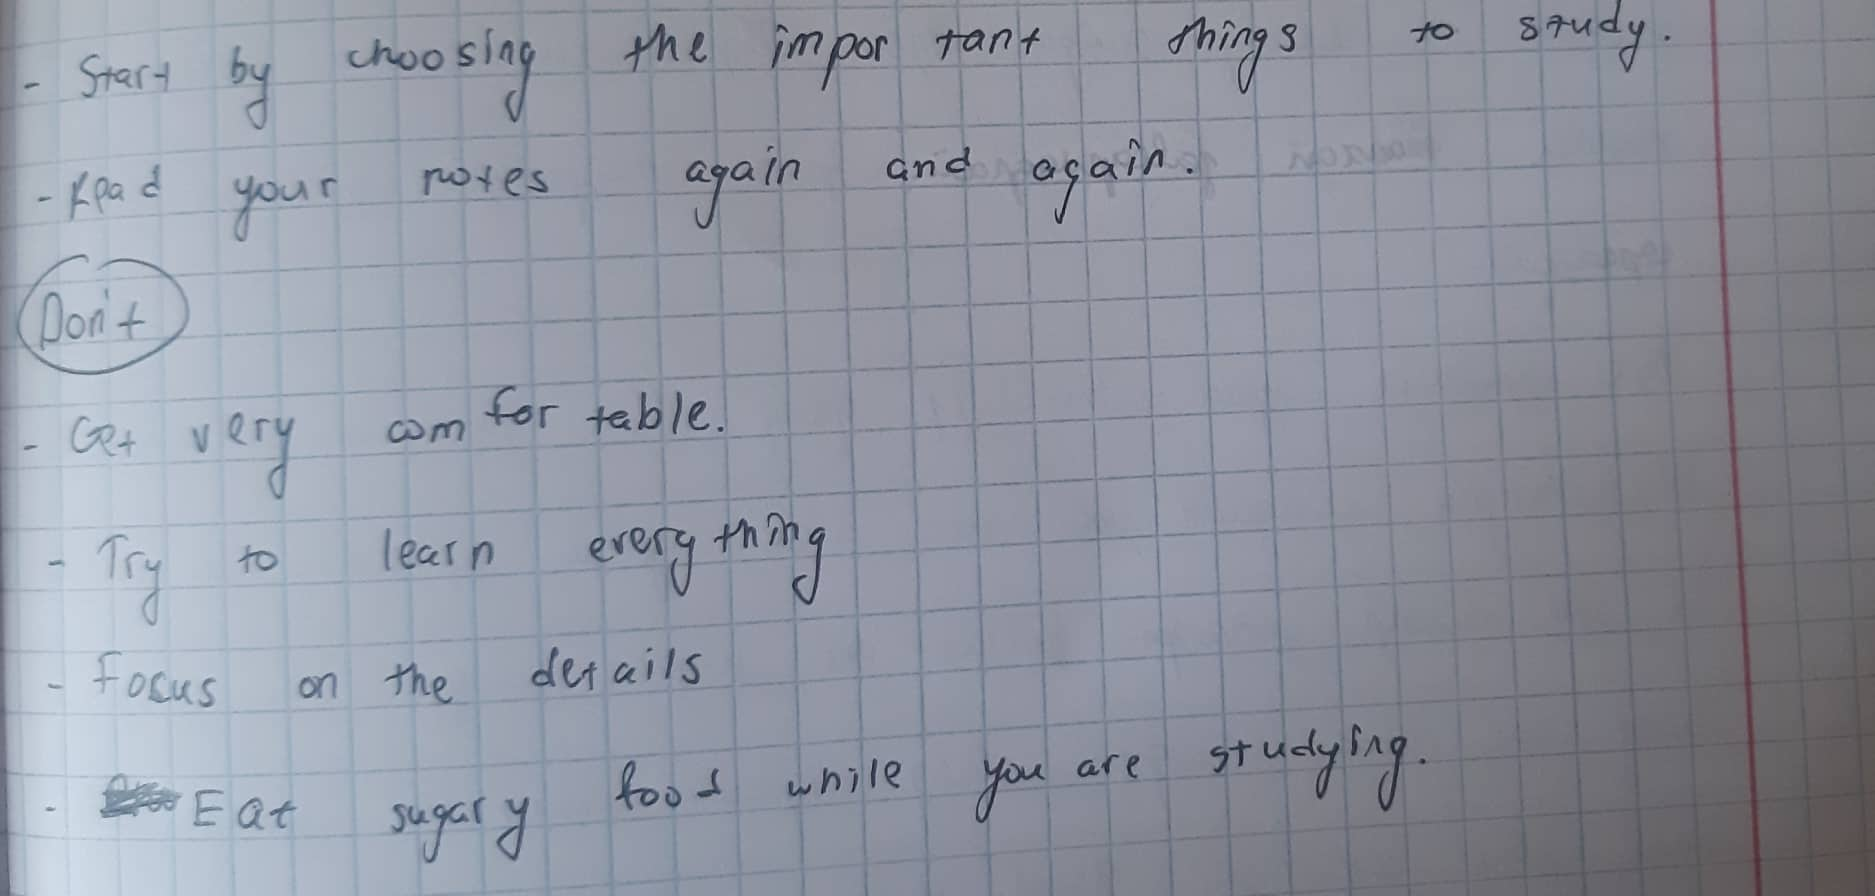 - Start by choosing the important things to study.
- Read your notes again and again.
Don't
- Get very comfortable.
- Try to learn everything
- Focus on the details
- Eat sugary food while you are studying.